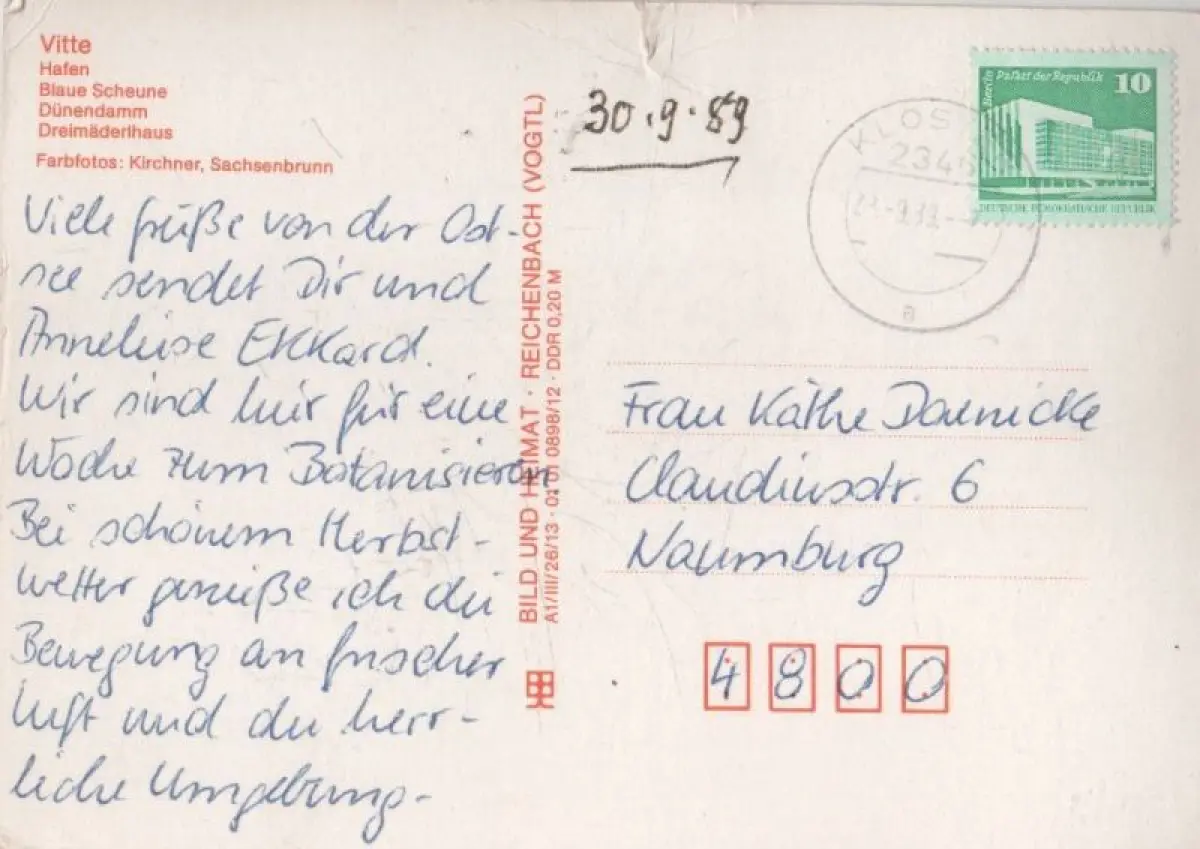 Vitte
Hafen
Blaue Scheune
Dünendamm
Dreimäderlhaus
Farbfotos: Kirchner, Sachsenbrunn
Viele Grüße von der Ost-
see sendet Dir und
Anneliese Ekkard.
Wir sind hier für eine
Woche zum Botanisieren
Bei schönem Herbst-
wetter genieße ich die
Bewegung an frischer
Luft und die herr-
liche Umgebung-
BILD UND HEIMAT · REICHENBACH (VOGTL)
A1/III/26/13 · 01 01 0898/12 · DDR 0,20 M
30.9.89
Berlin Palast der Republik 10
DEUTSCHE DEMOKRATISCHE REPUBLIK
KLOS
234
a
Frau Käthe Daenicke
Claudiusstr. 6
Naumburg
4800